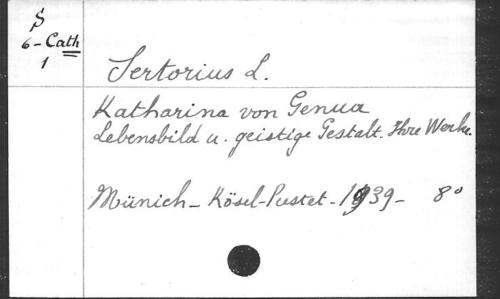 S
6-Cath
1
Sertorius L.
Katharina von Genua
Lebensbild u. geistige Gestalt. Ihre Werke.
Münich - Kösel-Pustet - 1939 - 8°